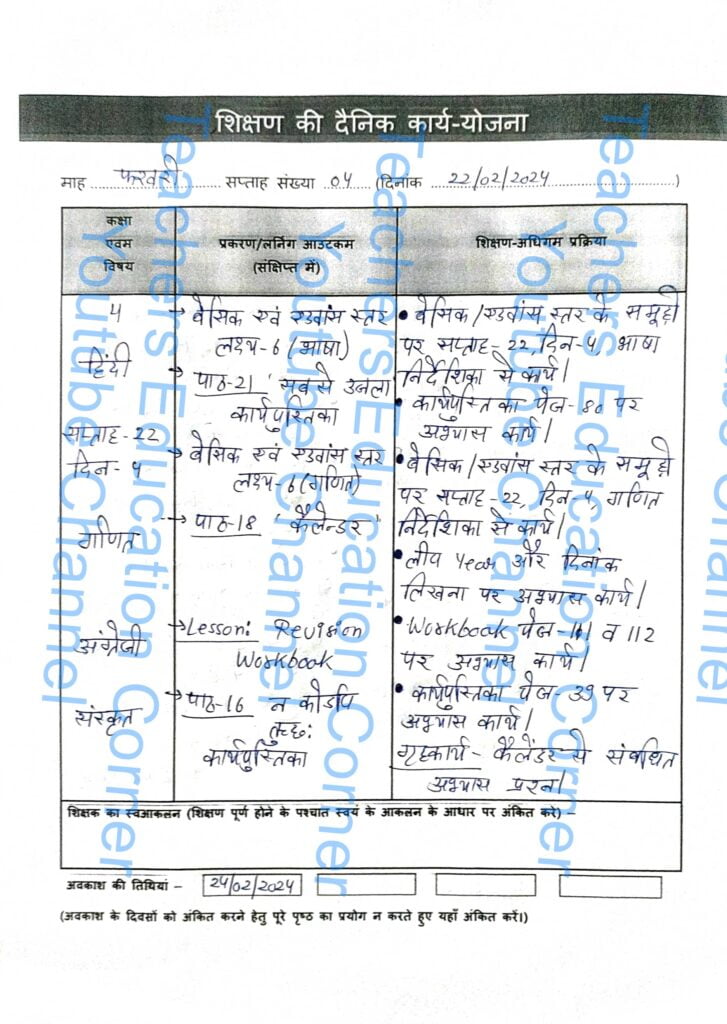 शिक्षण की दैनिक कार्य-योजना
माह फरवरी सप्ताह संख्या 04 (दिनांक 22/02/2024)
कक्षा
एवम
विषय
प्रकरण/लर्निंग आउटकम
(संक्षिप्त में)
शिक्षण-अधिगम प्रक्रिया
4
हिंदी
सप्ताह-22
दिन-4
→ बेसिक एवं एडवांस स्तर
लक्ष्य-6 (भाषा)
→ पाठ-21 'सबसे उजला
कार्यपुस्तिका
• बेसिक/एडवांस स्तर के समूहों
पर सप्ताह-22, दिन-4, भाषा
निर्देशिका से कार्य।
• कार्यपुस्तिका पेज-80 पर
अभ्यास कार्य।
गणित
→ बेसिक एवं एडवांस स्तर
लक्ष्य-6 (गणित)
→ पाठ-18 'कैलेन्डर'
• बेसिक/एडवांस स्तर के समूहों
पर सप्ताह-22, दिन-4, गणित
निर्देशिका से कार्य।
• लीप Year और दिनांक
लिखना पर अभ्यास कार्य।
अंग्रेजी
→ Lesson: Revision
Workbook
• Workbook पेज-111 व 112
पर अभ्यास कार्य।
संस्कृत
→ पाठ-16 न कोऽपि
तुच्छः
कार्यपुस्तिका
• कार्यपुस्तिका पेज-39 पर
अभ्यास कार्य।
गृहकार्य- कैलेंडर से संबंधित
अभ्यास प्रश्न।
शिक्षक का स्वआकलन (शिक्षण पूर्ण होने के पश्चात स्वयं के आकलन के आधार पर अंकित करें) –
अवकाश की तिथियां – 24/02/2024
(अवकाश के दिवसों को अंकित करने हेतु पूरे पृष्ठ का प्रयोग न करते हुए यहाँ अंकित करें।)
Teachers Education Corner
Youtube Channel
Teachers Education Corner
Youtube Channel
Teachers Education Corner
Youtube Channel